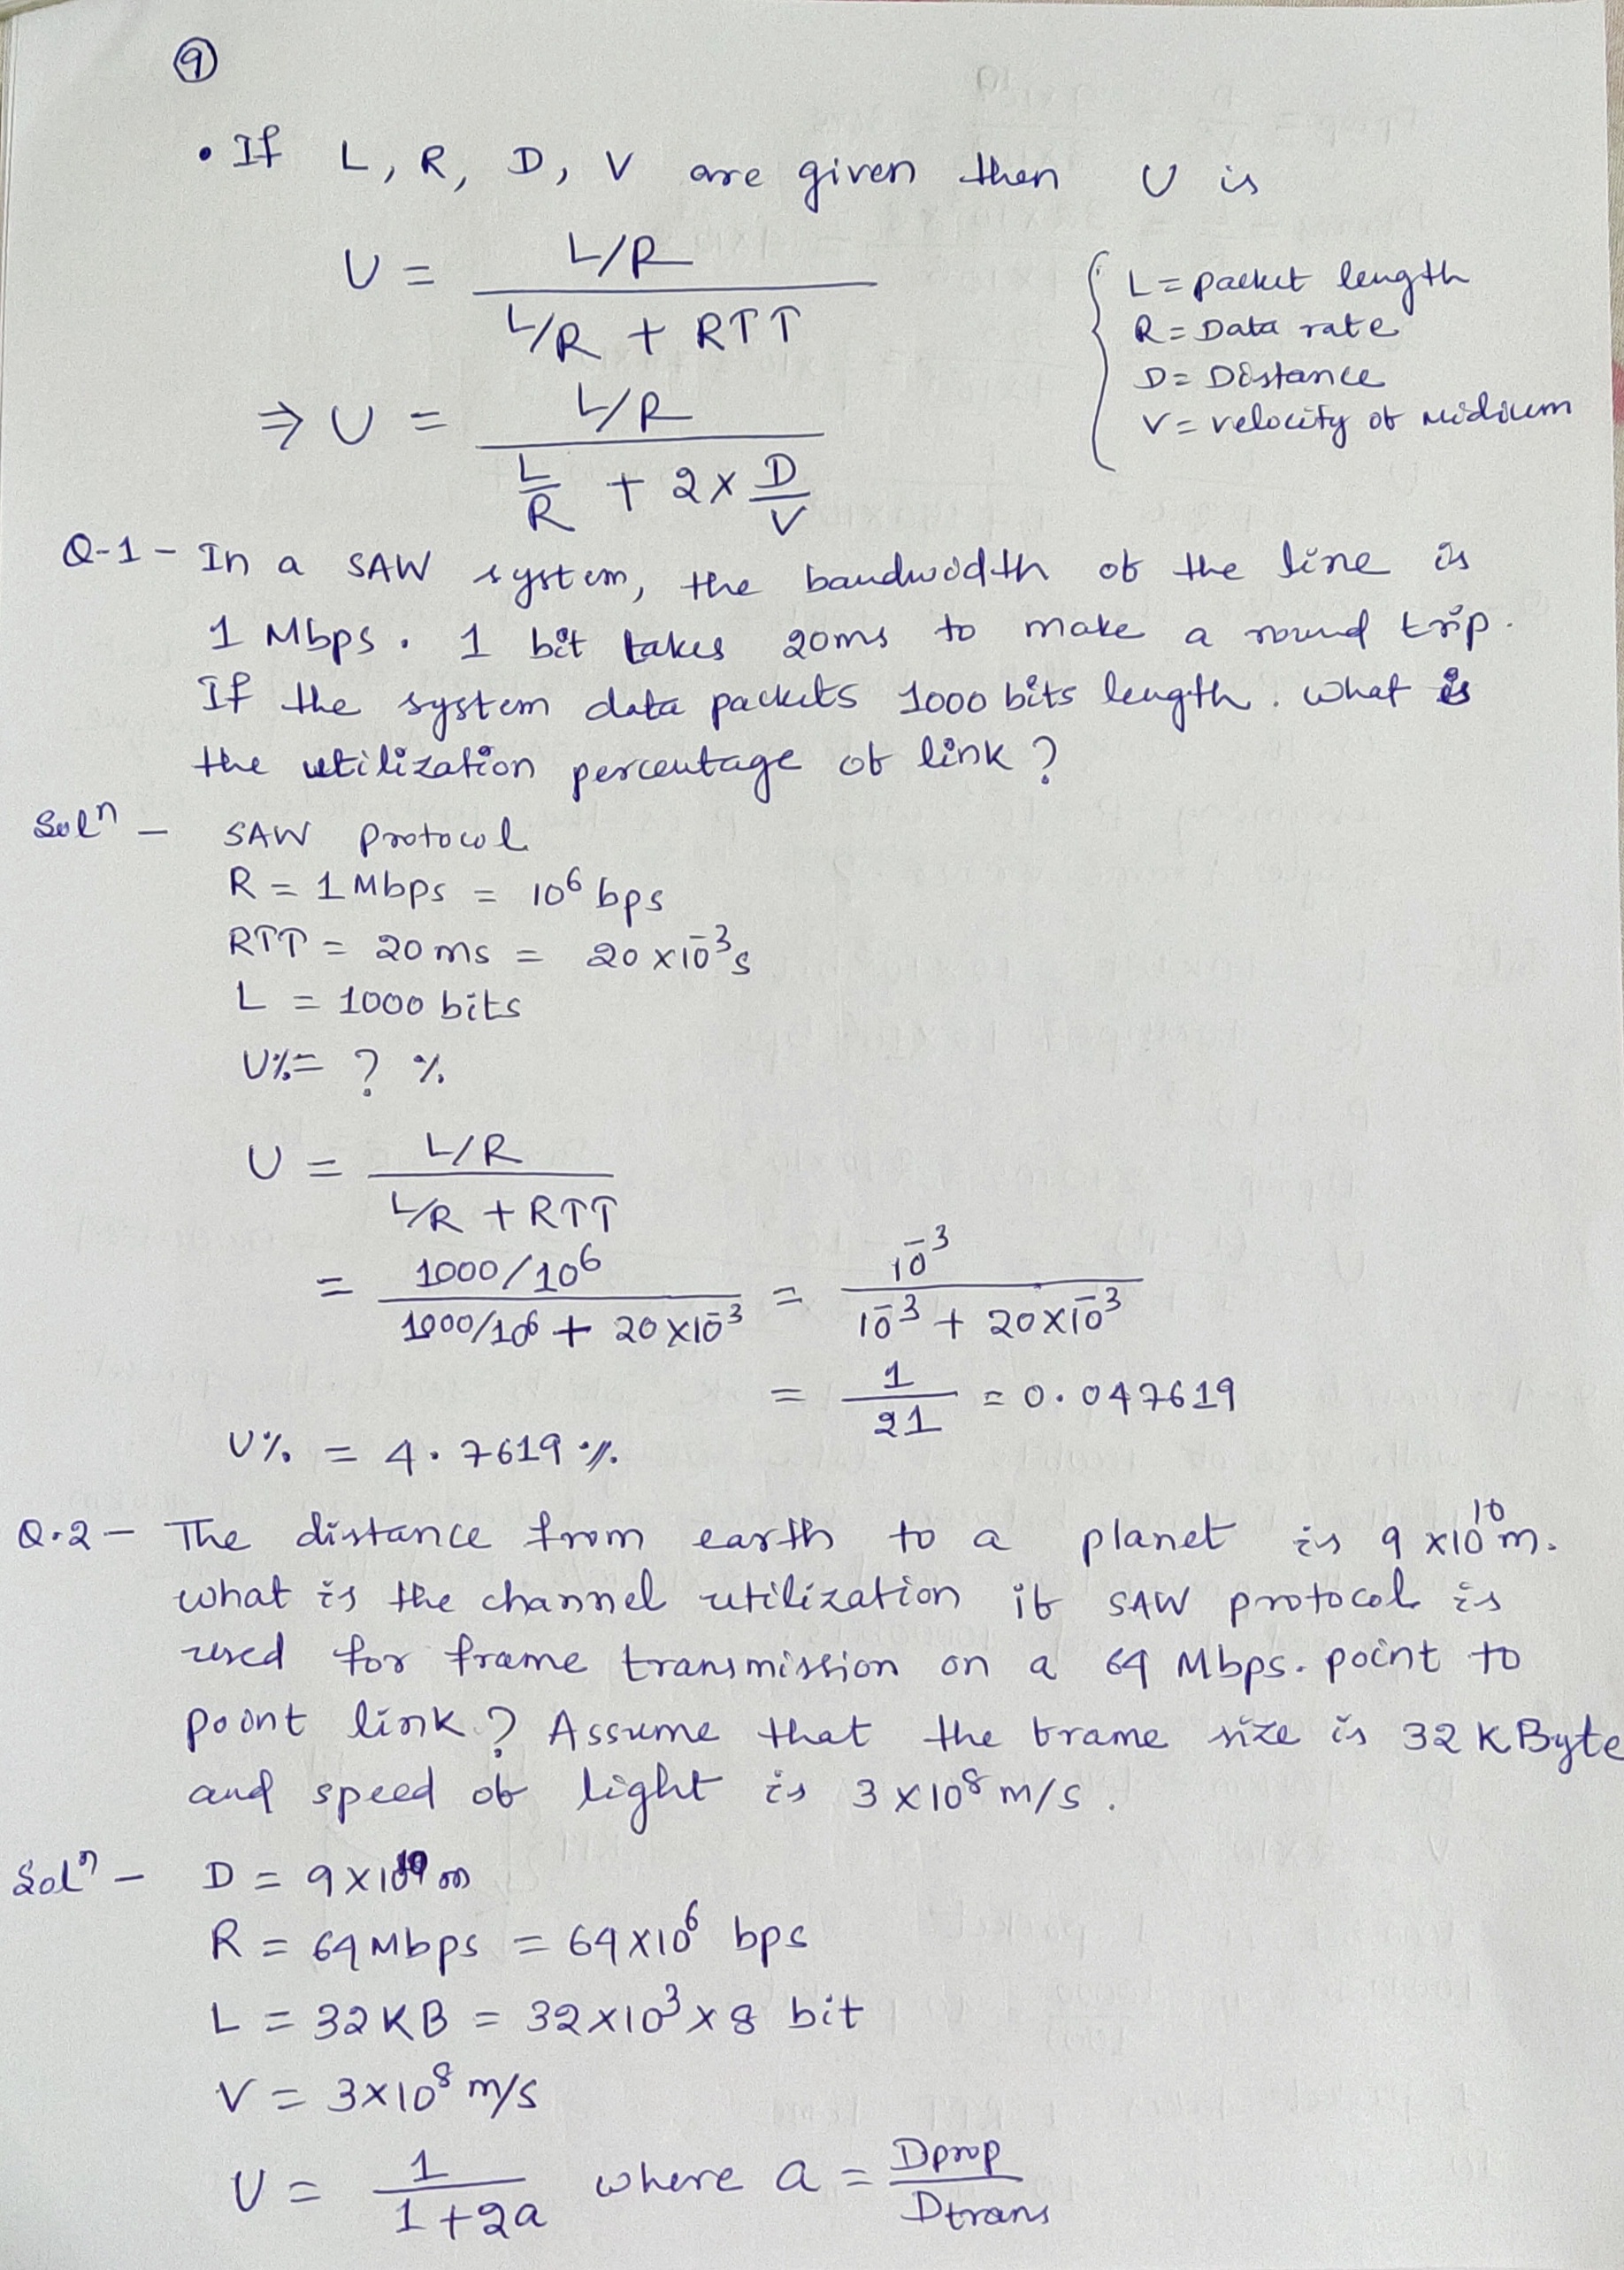 9
• If L, R, D, V are given then U is
U = L/R / L/R + RTT
{ L = packet length
R = Data rate
D = Distance
V = velocity of midium
⇒ U = L/R / L/R + 2 x D/V
Q-1 - In a SAW system, the bandwidth of the line is
1 Mbps. 1 bit takes 20ms to make a round trip.
If the system data packets 1000 bits length. what is
the utilization percentage of link?
Solⁿ - SAW protocol
R = 1 Mbps = 10⁶ bps
RTT = 20 ms = 20 x 10⁻³ s
L = 1000 bits
U% = ? %
U = L/R / L/R + RTT
= 1000/10⁶ / 1000/10⁶ + 20 x 10⁻³ = 10⁻³ / 10⁻³ + 20x10⁻³
= 1/21 = 0.047619
U% = 4.7619 %
Q.2 - The distance from earth to a planet is 9 x10¹⁰ m.
what is the channel utilization if SAW protocol is
used for frame transmission on a 64 Mbps. point to
point link? Assume that the frame size is 32 K Byte
and speed of light is 3 x 10⁸ m/s.
Solⁿ - D = 9 x 10¹⁰ m
R = 64 Mbps = 64 x 10⁶ bps
L = 32 KB = 32 x 10³ x 8 bit
V = 3 x 10⁸ m/s
U = 1 / 1 + 2a where a = Dprop / Dtrans